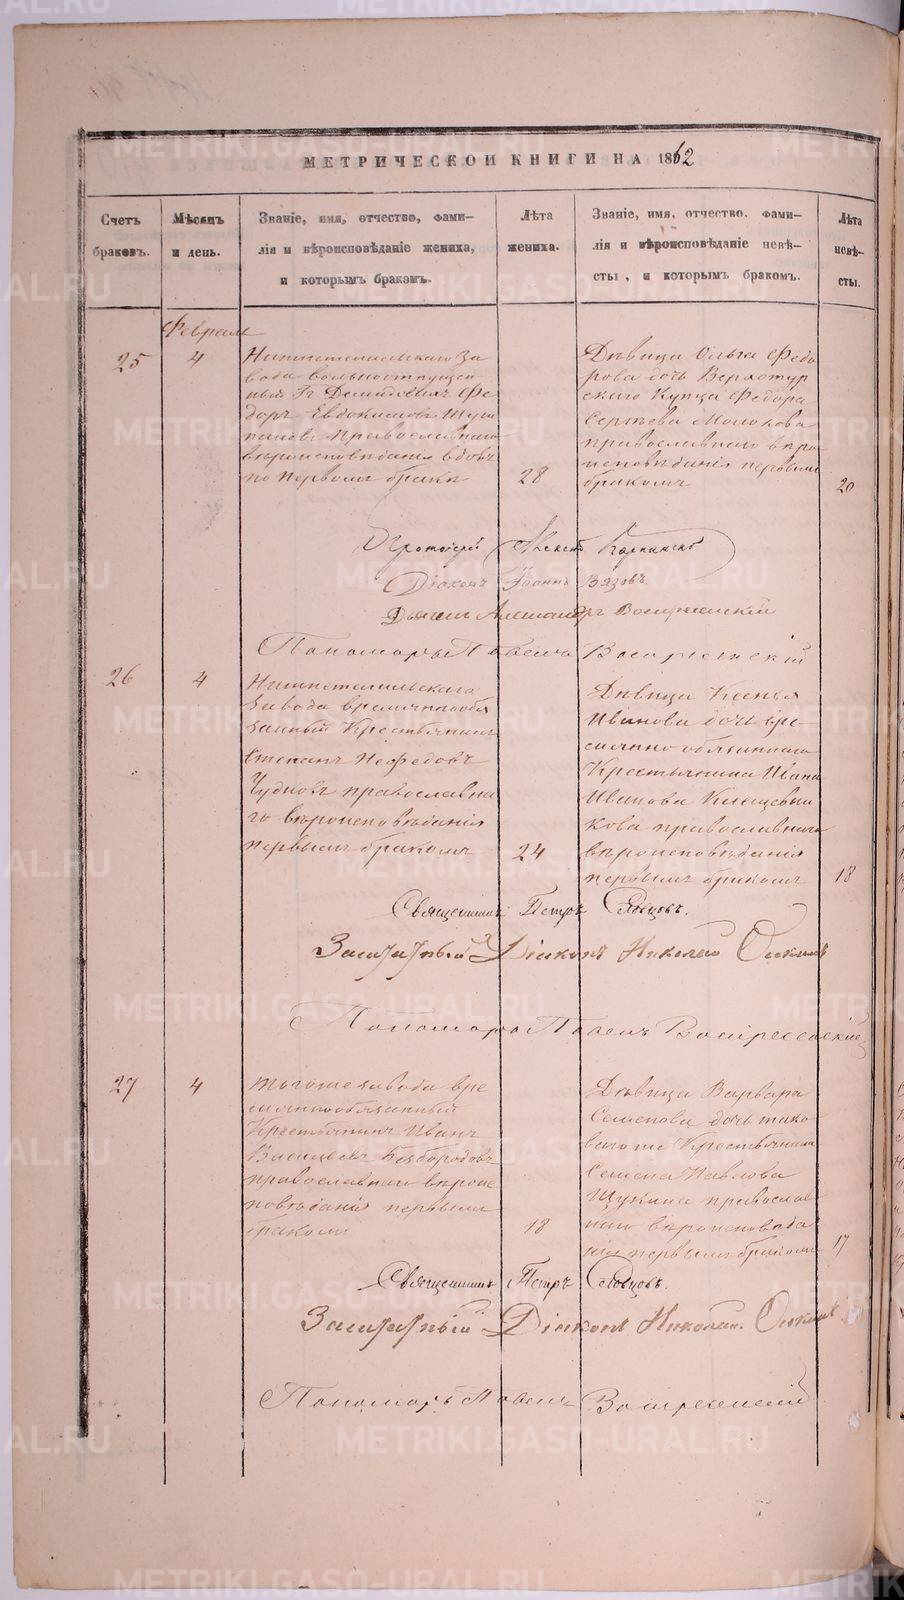 МЕТРИЧЕСКОИ КНИГИ НА 1862
Счетъ
браковъ.
Мѣсяцъ
и день.
Званіе, имя, отчество, фами-
лія и вѣроисповѣданіе жениха,
и которымъ бракомъ.
Лѣта
жениха.
Званіе, имя, отчество, фами-
лія и вѣроисповѣданіе невѣ-
сты, и которымъ бракомъ.
Лѣта
невѣ-
сты.
Февраля
25
4
Нижнетагильскаго за
вода вольноотпущен
ный Гг Демидовыхъ Фе
доръ Евдокимовъ
православнаго
вѣроисповѣданія вдовъ
по первомъ бракѣ
28
Дѣвица Ольга Федо
рова дочь Верхотур
скаго Купца Федора
Сергѣева Молокова
православнаго вѣро
исповѣданія первымъ
бракомъ
20
Протоіерей
Діаконъ Іоаннъ Вязовъ
Дьячекъ Александръ Воскресенскій
Пономарь Павелъ Воскресенскій
26
4
Нижнетагильскаго
завода временнообя
занный Крестьянинъ
Степанъ Нефедовъ
Чудновъ православна
го вѣроисповѣданія
первымъ бракомъ
24
Дѣвица Ксенья
Иванова дочь вре-
менно обязаннаго
Крестьянина Ивана
Иванова
кова православнаго
вѣроисповѣданія
первымъ бракомъ
18
Священникъ Петръ Словцовъ.
Заштатный Діаконъ Николай
Пономарь Павелъ Воскресенскій
27
4
Тогоже завода вре
меннообязанный
Крестьянинъ Иванъ
Васильевъ Безбородовъ
православнаго вѣроис
повѣданія первымъ
бракомъ
18
Дѣвица Варвара
Семенова дочь тако
ваго же Крестьянина
Семена Павлова
Щукина православ
наго вѣроисповѣда
нія первымъ бракомъ
17
Священникъ Петръ Словцовъ.
Заштатный Діаконъ Николай
Пономарь Павелъ Воскресенскій
METRIKI.GASO-URAL.RU